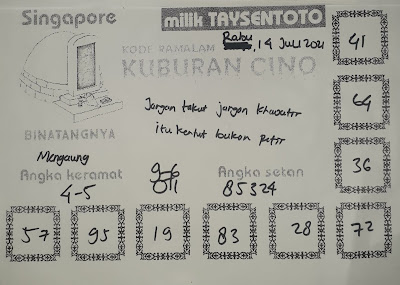 Singapore
milik TAYSENTOTO
Rabu, 14 Juli 2021
KODE RAMALAN
KUBURAN CINO
41
Jangan takut jangan khawatir
itu kentut bukan petir
64
BINATANGNYA
Mengaung
Angka keramat
4-5
Angka setan
85324
36
57
95
19
83
28
72